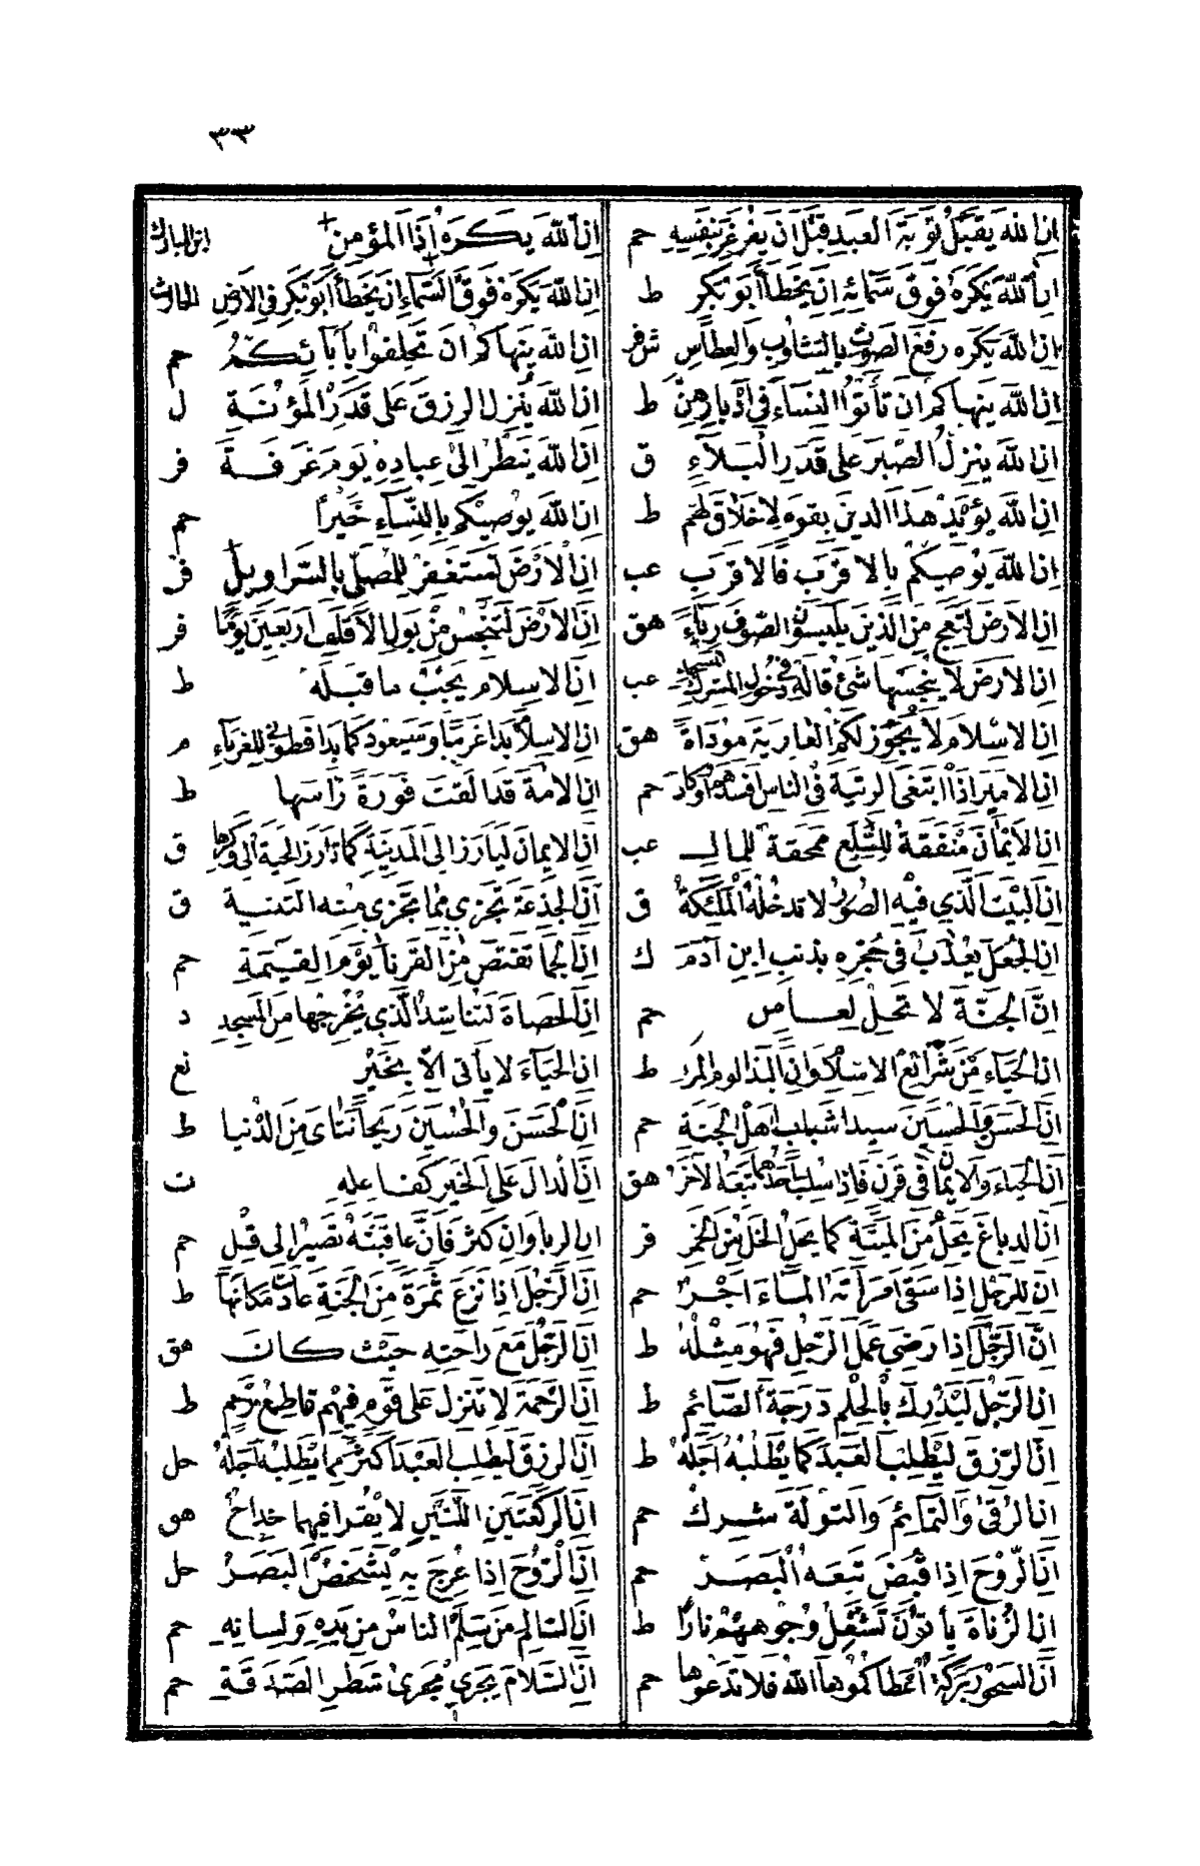 ٣٣
ان الله يقبل توبة العبد قبل ان يغرغر بنفسه حم
ان الله يكره فوق سمائه ان يخطأ ابو بكر ط
ان الله يكره رفع الصوت بالتثاوب والعطاس فر
ان الله ينهاكم ان تأتوا النساء في ادبارهن ط
ان الله ينزل الصبر على قدر البلاء ق
ان الله يؤيد هذا الدين بقوم لا خلاق لهم ط
ان الله يوصيكم بالاقرب فالاقرب عب
ان الارض لتعج من الذين يلبسون الصوف رياء هق
ان الارض لا ينجسها شئ قاله في دخول المشرك المسجد عب
ان الاسلام لا يجوز لكم العارية موداة هق
ان الامير اذا ابتغى الريبة في الناس افسدهم حم
ان الايمان منفقة للسلع ممحقة للمال عب
ان البيت الذي فيه الصور لا تدخله الملئكة ق
ان الجعل يعذب في حجره بذنب ابن آدم ك
ان الجنة لا تحل لعاص حم
ان الحياء من شرائع الاسلام وان البذا لوم المرء ط
ان الحسن والحسين سيدا شباب اهل الجنة حم
ان الحياء والايمان في قرن فاذا سلب احدهما تبعه الآخر هق
ان الدباغ يحل من الميتة كما يحل الخل من الخمر فر
ان الرجل اذا سقى امرأته الماء اجر حم
ان الرجل اذا رضي عمل الرجل فهو مثله ط
ان الرجل ليدرك بالحلم درجة الصائم ط
ان الرزق ليطلب العبد كما يطلبه اجله ط
ان الرقى والتمائم والتولة شرك حم
ان الروح اذا قبض تبعه البصر حم
ان الزناة يأتون تشتعل وجوههم نارا ط
ان السحور بركة اعطاكموها الله فلا تدعوها حم
ان الله يكره اذا المؤمن ابن المبارك
ان الله يكره فوق السماء ان يخطأ ابو بكر في الارض الحارث
ان الله ينهاكم ان تحلفوا بآبائكم حم
ان الله ينزل الرزق على قدر المؤنة ل
ان الله ينظر الى عباده يوم عرفة فر
ان الله يوصيكم بالنساء خيرا حم
ان الارض لتستغفر للمصلي بالسراويل فر
ان الارض لتنجس من بول الاقلف اربعين يوما فر
ان الاسلام يجب ما قبله ط
ان الاسلام بدا غريبا وسيعود كما بدا فطوبى للغرباء م
ان الامة قد القت فروة راسها ط
ان الايمان ليارز الى المدينة كما تارز الحية الى وكرها ق
ان الجذعة تجزي مما تجزي منه الثنية ق
ان الجما تقتص من القرنا يوم القيمة حم
ان الحصاة لتناشد الذي يخرجها من المسجد د
ان الحياء لا يأتي الا بخير نع
ان الحسن والحسين ريحانتاى من الدنيا ط
ان الدال على الخير كفاعله ت
ان الربا وان كثر فان عاقبته تصير الى قل حم
ان الرجل اذا نزع ثمرة من الجنة عادت مكانها ط
ان الرجل مع راحته حيث كان هق
ان الرحمة لا تنزل على قوم فيهم قاطع رحم ط
ان الرزق ليطلب العبد اكثر مما يطلبه اجله حل
ان الركعتين اللتين لا يقرا فيهما خداج هق
ان الروح اذا عرج به يشخص البصر حل
ان السالم من سلم الناس من يده ولسانه حم
ان السلام يجري مجرى شطر الصدقة حم